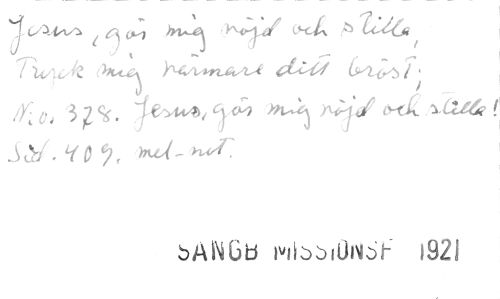 Jesus, gör mig nöjd och stilla,
Tryck mig närmare ditt bröst;
N:o. 378. Jesus, gör mig nöjd och stilla!
Sid. 409. mel-not.
SANGB MISSIONSF 1921